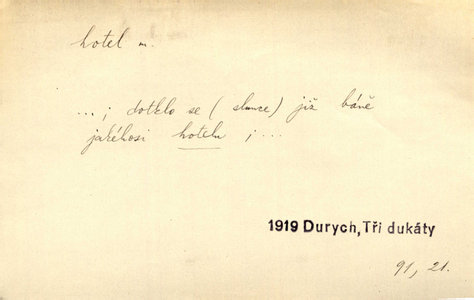 hotel m.
...; dotklo se (slunce) již báně
jakéhosi hotelu ; ...
1919 Durych, Tři dukáty
91, 21.